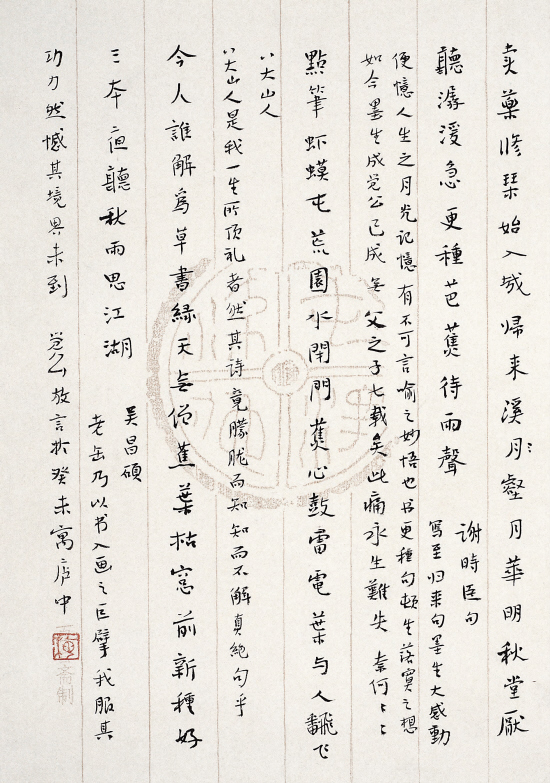 卖藥修琹始入城归来溪月壑月華明秋堂厭
聽潺湲急更種芭蕉待雨聲
謝時臣句
寫至归来句墨生大感動
便憶人生之月光记憶有不可言喻之妙悟也书更種句顿生落寞之想
如今墨生成觉公已成无父之子七载矣此痛永生難失奈何
點筆虾蟆屯荒園水閉門蕉心鼓雷電葉与人飜飞
八大山人
八大山人是我一生所顶礼者然其诗竟朦胧而知知而不解真绝句乎
今人誰解為草書緑天无僧蕉葉枯窓前新種好
三本夜聽秋雨思江湖
吴昌硕
老缶乃以书入画之巨擘我服其
功力然憾其境界未到 觉公放言於癸未寓庐中
斋制